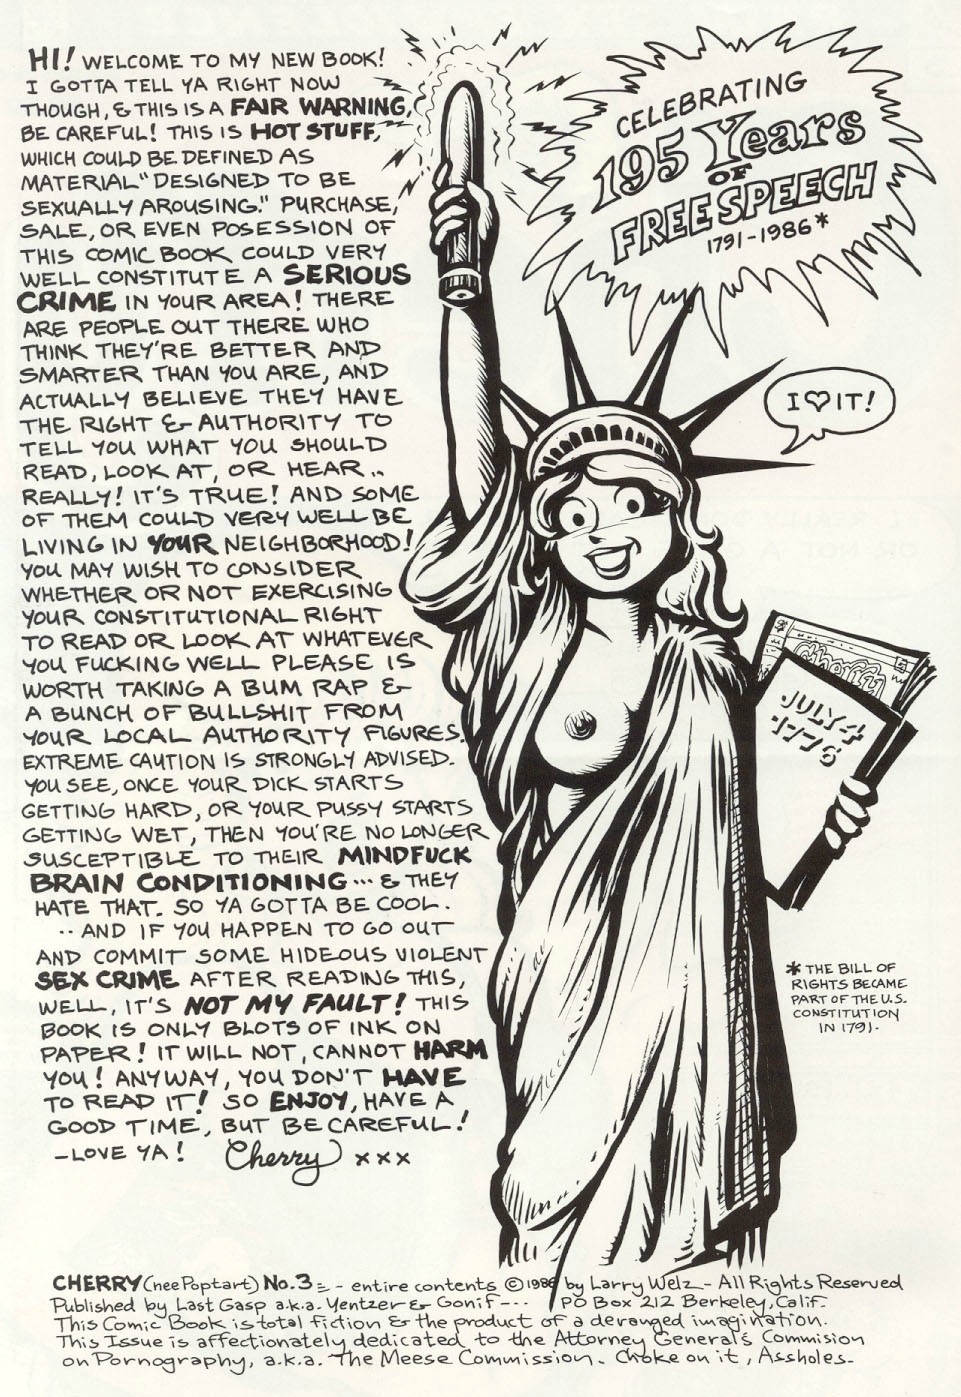 HI! WELCOME TO MY NEW BOOK!
I GOTTA TELL YA RIGHT NOW
THOUGH, & THIS IS A FAIR WARNING,
BE CAREFUL! THIS IS HOT STUFF,
WHICH COULD BE DEFINED AS
MATERIAL "DESIGNED TO BE
SEXUALLY AROUSING." PURCHASE,
SALE, OR EVEN POSESSION OF
THIS COMIC BOOK COULD VERY
WELL CONSTITUTE A SERIOUS
CRIME IN YOUR AREA! THERE
ARE PEOPLE OUT THERE WHO
THINK THEY'RE BETTER AND
SMARTER THAN YOU ARE, AND
ACTUALLY BELIEVE THEY HAVE
THE RIGHT & AUTHORITY TO
TELL YOU WHAT YOU SHOULD
READ, LOOK AT, OR HEAR..
REALLY! IT'S TRUE! AND SOME
OF THEM COULD VERY WELL BE
LIVING IN YOUR NEIGHBORHOOD!
YOU MAY WISH TO CONSIDER
WHETHER OR NOT EXERCISING
YOUR CONSTITUTIONAL RIGHT
TO READ OR LOOK AT WHATEVER
YOU FUCKING WELL PLEASE IS
WORTH TAKING A BUM RAP &
A BUNCH OF BULLSHIT FROM
YOUR LOCAL AUTHORITY FIGURES.
EXTREME CAUTION IS STRONGLY ADVISED.
YOU SEE, ONCE YOUR DICK STARTS
GETTING HARD, OR YOUR PUSSY STARTS
GETTING WET, THEN YOU'RE NO LONGER
SUSCEPTIBLE TO THEIR MINDFUCK
BRAIN CONDITIONING... & THEY
HATE THAT. SO YA GOTTA BE COOL.
..AND IF YOU HAPPEN TO GO OUT
AND COMMIT SOME HIDEOUS VIOLENT
SEX CRIME AFTER READING THIS,
WELL, IT'S NOT MY FAULT! THIS
BOOK IS ONLY BLOTS OF INK ON
PAPER! IT WILL NOT, CANNOT HARM
YOU! ANYWAY, YOU DON'T HAVE
TO READ IT! SO ENJOY, HAVE A
GOOD TIME, BUT BE CAREFUL!
-LOVE YA! Cherry xxx
CELEBRATING
195 Years
OF
FREE SPEECH
1791-1986*
I ♡ IT!
Cherry
JULY 4
1776
* THE BILL OF
RIGHTS BECAME
PART OF THE U.S.
CONSTITUTION
IN 1791.
CHERRY (nee Poptart) No.3 = - entire contents © 1986 by Larry Welz - All Rights Reserved
Published by Last Gasp a.k.a. Yentzer & Gonif --- PO Box 212 Berkeley, Calif.
This Comic Book is total fiction & the product of a deranged imagination.
This Issue is affectionately dedicated to the Attorney General's Commision
on Pornography, a.k.a. The Meese Commission. Choke on it, Assholes.